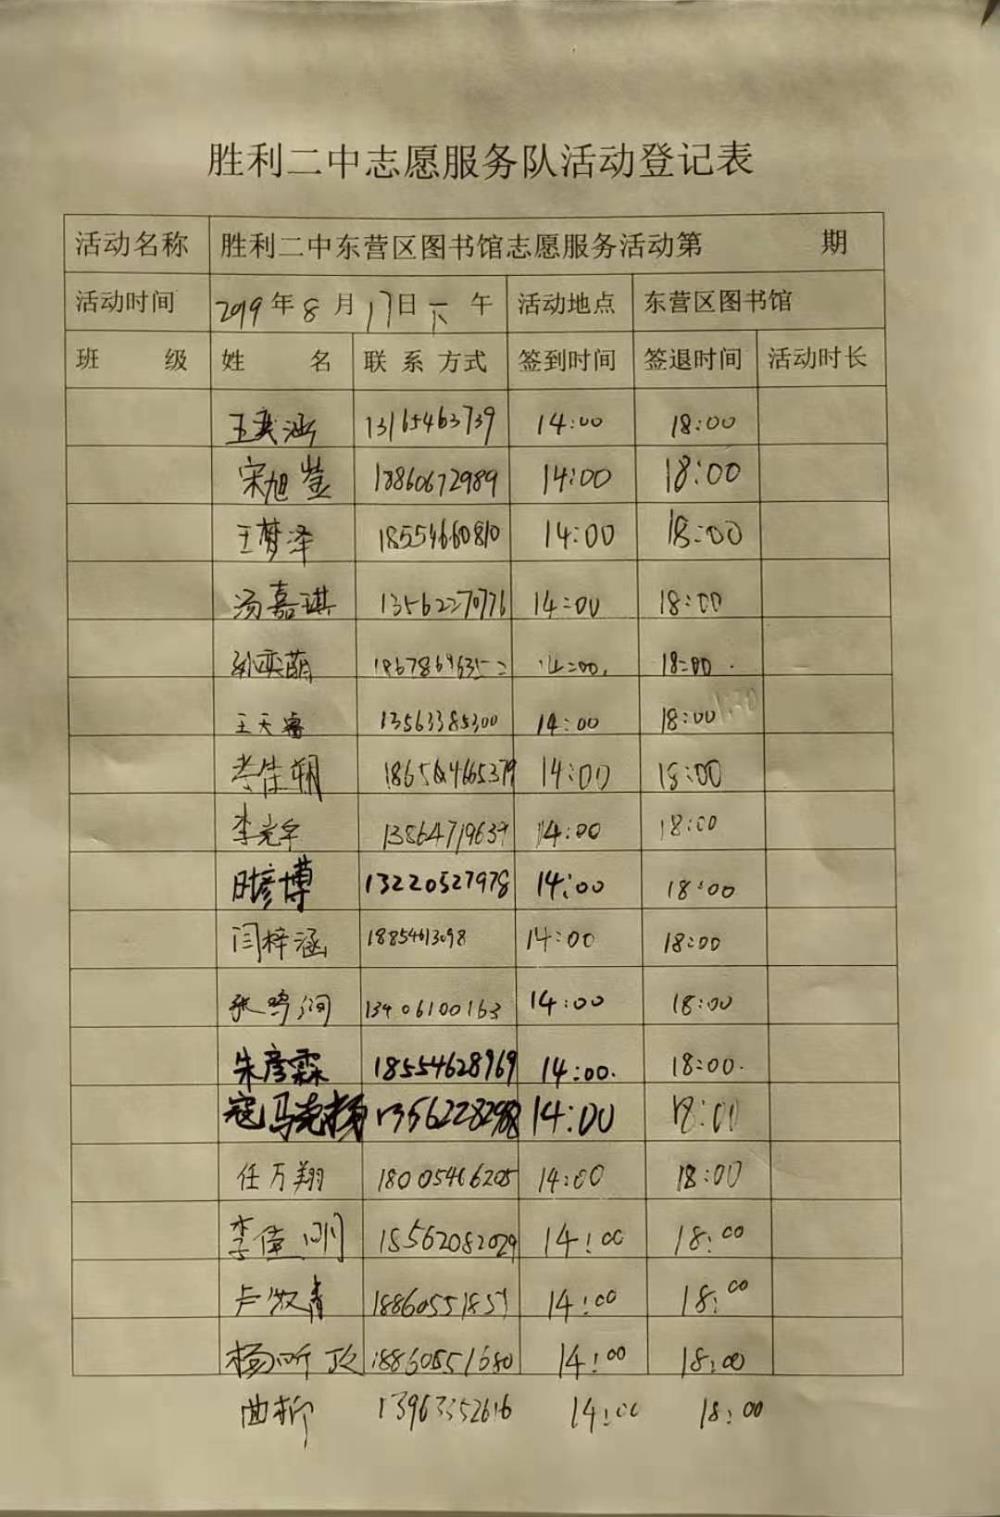 胜利二中志愿服务队活动登记表
活动名称 胜利二中东营区图书馆志愿服务活动第 期
活动时间 2019年8月17日下午 活动地点 东营区图书馆
班 级 姓 名 联系方式 签到时间 签退时间 活动时长
王奕涵 13165463739 14:00 18:00
宋旭莹 18860672989 14:00 18:00
王梦泽 18554660810 14:00 18:00
汤嘉琪 13562270776 14:00 18:00
孙奕萌 14:00. 18:00.
王天睿 13563385300 14:00 18:00
14:00 18:00
李光宇 13864719639 14:00 18:00
时彦博 13220527978 14:00 18:00
闫梓涵 18854613098 14:00 18:00
张鸣润 13406100163 14:00 18:00
朱彦霖 18554628969 14:00. 18:00.
寇马克杨 14:00 18:00
任万翔 18005466205 14:00 18:00
李偉刚 18562082029 14:00 18:00
卢牧青 18860551859 14:00 18:00
杨昕 18860551680 14:00 18:00
曲析 13963352616 14:00 18:00